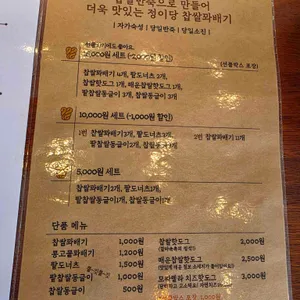 찹쌀반죽으로 만들어
더욱 맛있는 정이당 찹쌀꽈배기
| 자가숙성 | 당일반죽 | 당일소진 |
선물하기에도 좋아요.
세트 (-2,000원 할인)
(선물박스 포장)
찹쌀꽈배기 4개, 팥도너츠 3개,
찹쌀핫도그 2개, 매운찹쌀핫도그 1개,
팥찹쌀동글이 3개, 찹쌀동글이 3개
10,000원 세트 (-1,000원 할인)
1번 찹쌀꽈배기3개, 팥도너츠3개,
2번 찹쌀꽈배기 11개
찹쌀핫도그1개,
팥찹쌀동글이2개, 찹쌀동글이2개
5,000원 세트
찹쌀꽈배기2개, 팥도너츠1개,
팥찹쌀동글이1개, 찹쌀동글이1개
단품 메뉴
찹쌀꽈배기 1,000원
콩고물꽈배기 1,200원
팥도너츠 1,000원
팥찹쌀동글이 500원
찹쌀동글이 500원
찹쌀핫도그 2,000원
매운찹쌀핫도그 2,500원
모짜렐라 치즈핫도그 2,500원